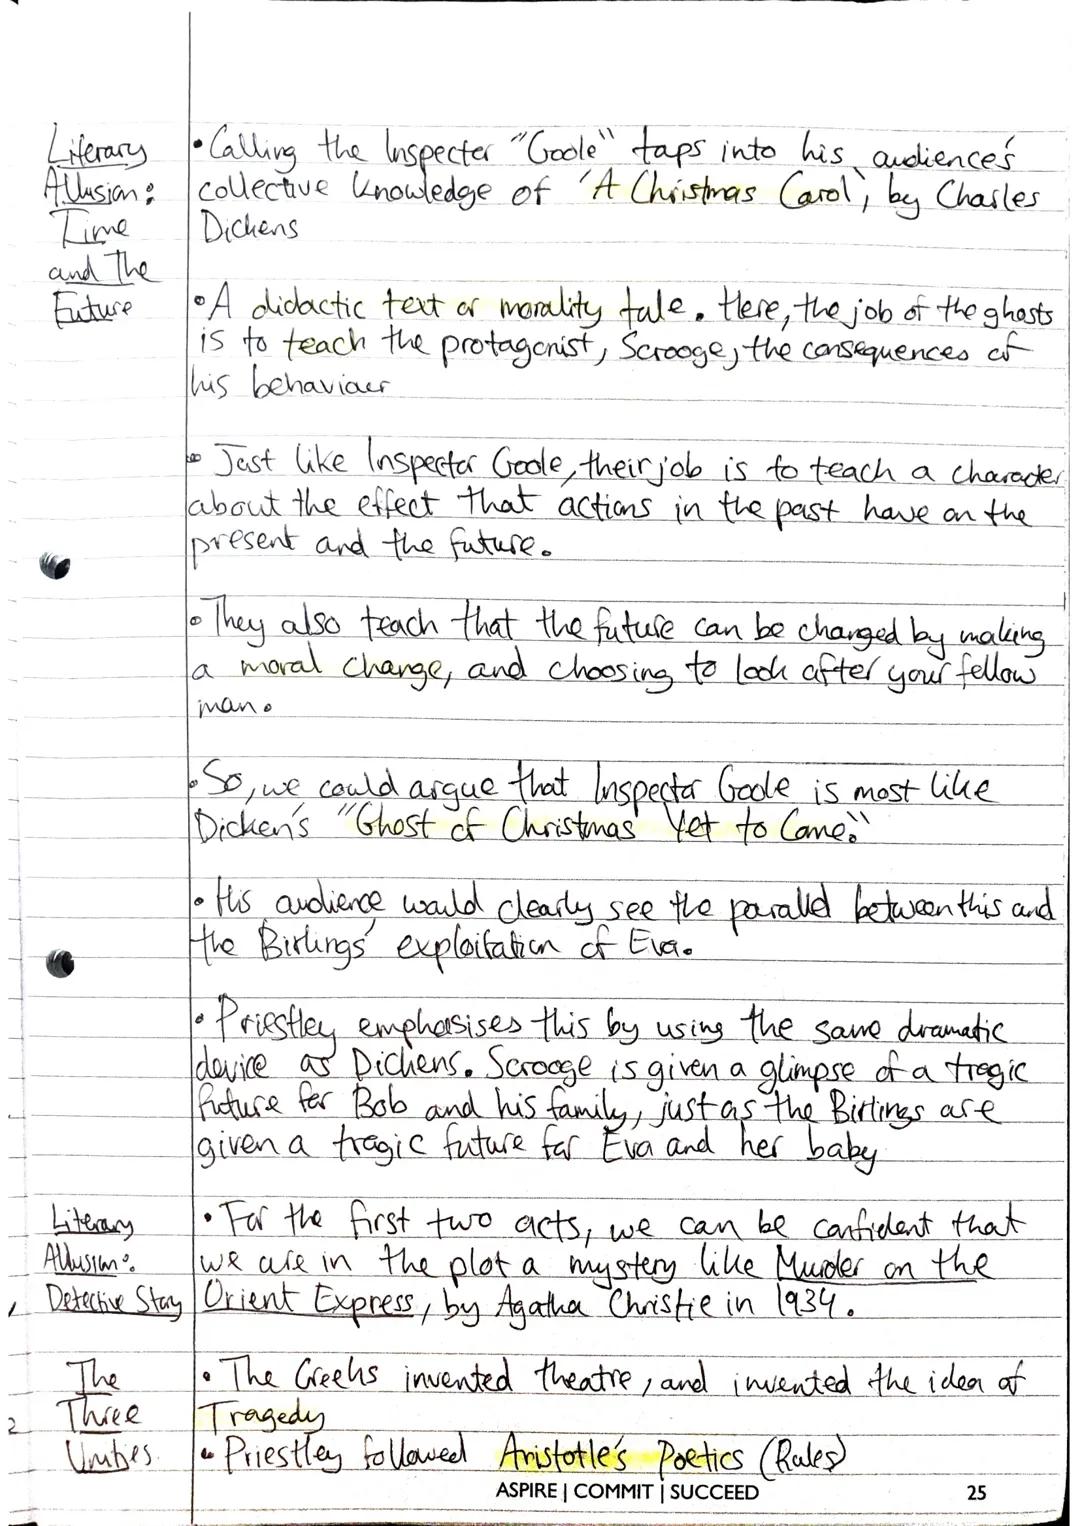 Literary
Allusion:
Time
and The
Future
• Calling the Inspector "Goole" taps into his audience's
collective knowledge of 'A Christmas Carol', by Charles
Dickens
• A didactic text or morality tale. Here, the job of the ghosts
is to teach the protagonist, Scrooge, the consequences of
his behaviour
• Just like Inspector Goole, their job is to teach a character
about the effect that actions in the past have on the
present and the future.
• They also teach that the future can be changed by making
a moral change, and choosing to look after your fellow
man.
• So, we could argue that Inspector Goole is most like
Dicken's "Ghost of Christmas Yet to Come."
• His audience would clearly see the parallel between this and
the Birlings' exploitation of Eva.
• Priestley emphasises this by using the same dramatic
device as Dickens. Scrooge is given a glimpse of a tragic
future for Bob and his family, just as the Birlings are
given a tragic future for Eva and her baby
Literary
Allusion:
Detective Story
• For the first two acts, we can be confident that
we are in the plot a mystery like Murder on the
Orient Express, by Agatha Christie in 1934.
The
Three
Unities.
• The Greeks invented theatre, and invented the idea of
Tragedy
• Priestley followed Aristotle's Poetics (Rules)
ASPIRE | COMMIT | SUCCEED
25